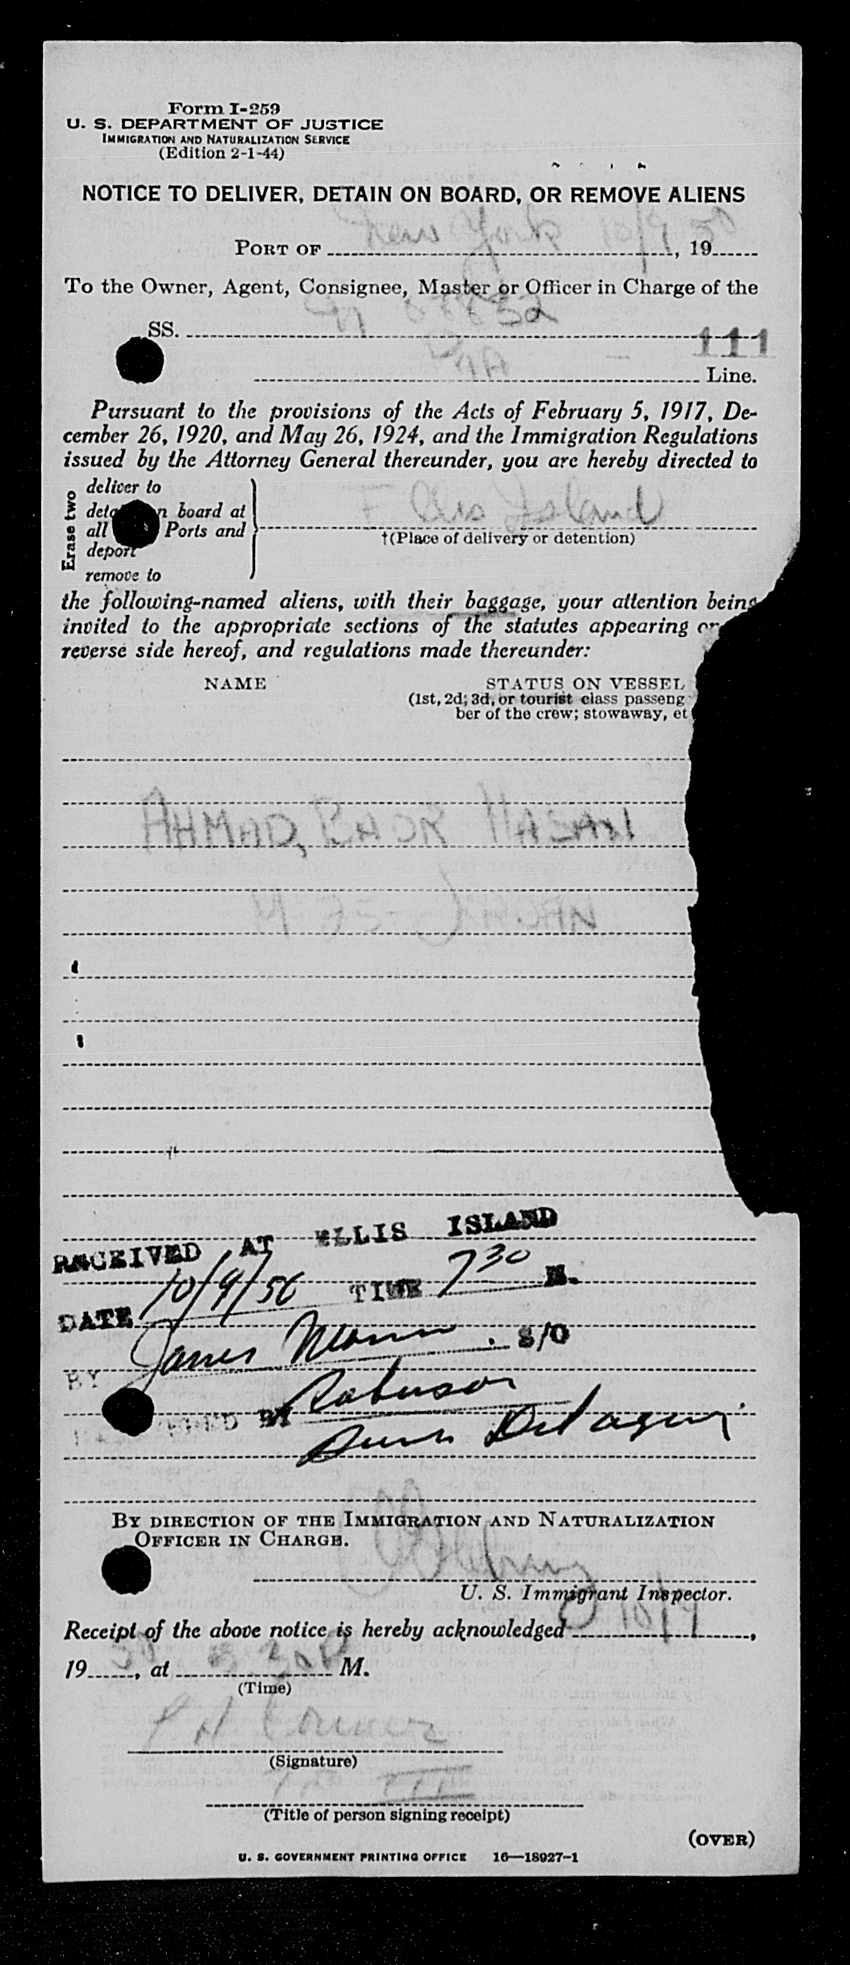 Form I-259
U. S. DEPARTMENT OF JUSTICE
IMMIGRATION AND NATURALIZATION SERVICE
(Edition 2-1-44)
NOTICE TO DELIVER, DETAIN ON BOARD, OR REMOVE ALIENS
PORT OF New York 10/9, 19 50
To the Owner, Agent, Consignee, Master or Officer in Charge of the
SS.
111
Line.
Pursuant to the provisions of the Acts of February 5, 1917, De-
cember 26, 1920, and May 26, 1924, and the Immigration Regulations
issued by the Attorney General thereunder, you are hereby directed to
Erase two
deliver to
board at
all Ports and
deport
remove to
Ellis Island
†(Place of delivery or detention)
the following-named aliens, with their baggage, your attention being
invited to the appropriate sections of the statutes appearing
reverse side hereof, and regulations made thereunder:
NAME
STATUS ON VESSEL
(1st, 2d; 3d, or tourist class passeng
ber of the crew; stowaway, et
AHMAD, HASAN
RECEIVED AT ELLIS ISLAND
DATE 10/9/50 TIME 7 30 M.
BY James S/O
BY Robinson
BY DIRECTION OF THE IMMIGRATION AND NATURALIZATION
OFFICER IN CHARGE.
U. S. Immigrant Inspector.
Receipt of the above notice is hereby acknowledged 10/9,
19 50, at 3 30 P M.
(Time)
(Signature)
(Title of person signing receipt)
(OVER)
U. S. GOVERNMENT PRINTING OFFICE 16—18927-1